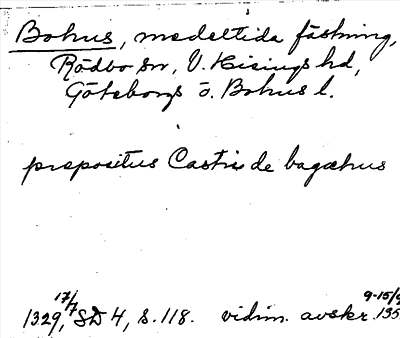 Bohus, medeltida fästning,
Rödbo sn, V. Hisings hd,
Göteborgs o. Bohus l.
prepositus Castri de bagahus
1329, 17/7 SD 4, s. 118. vidim. avskr. 9-15/9 135